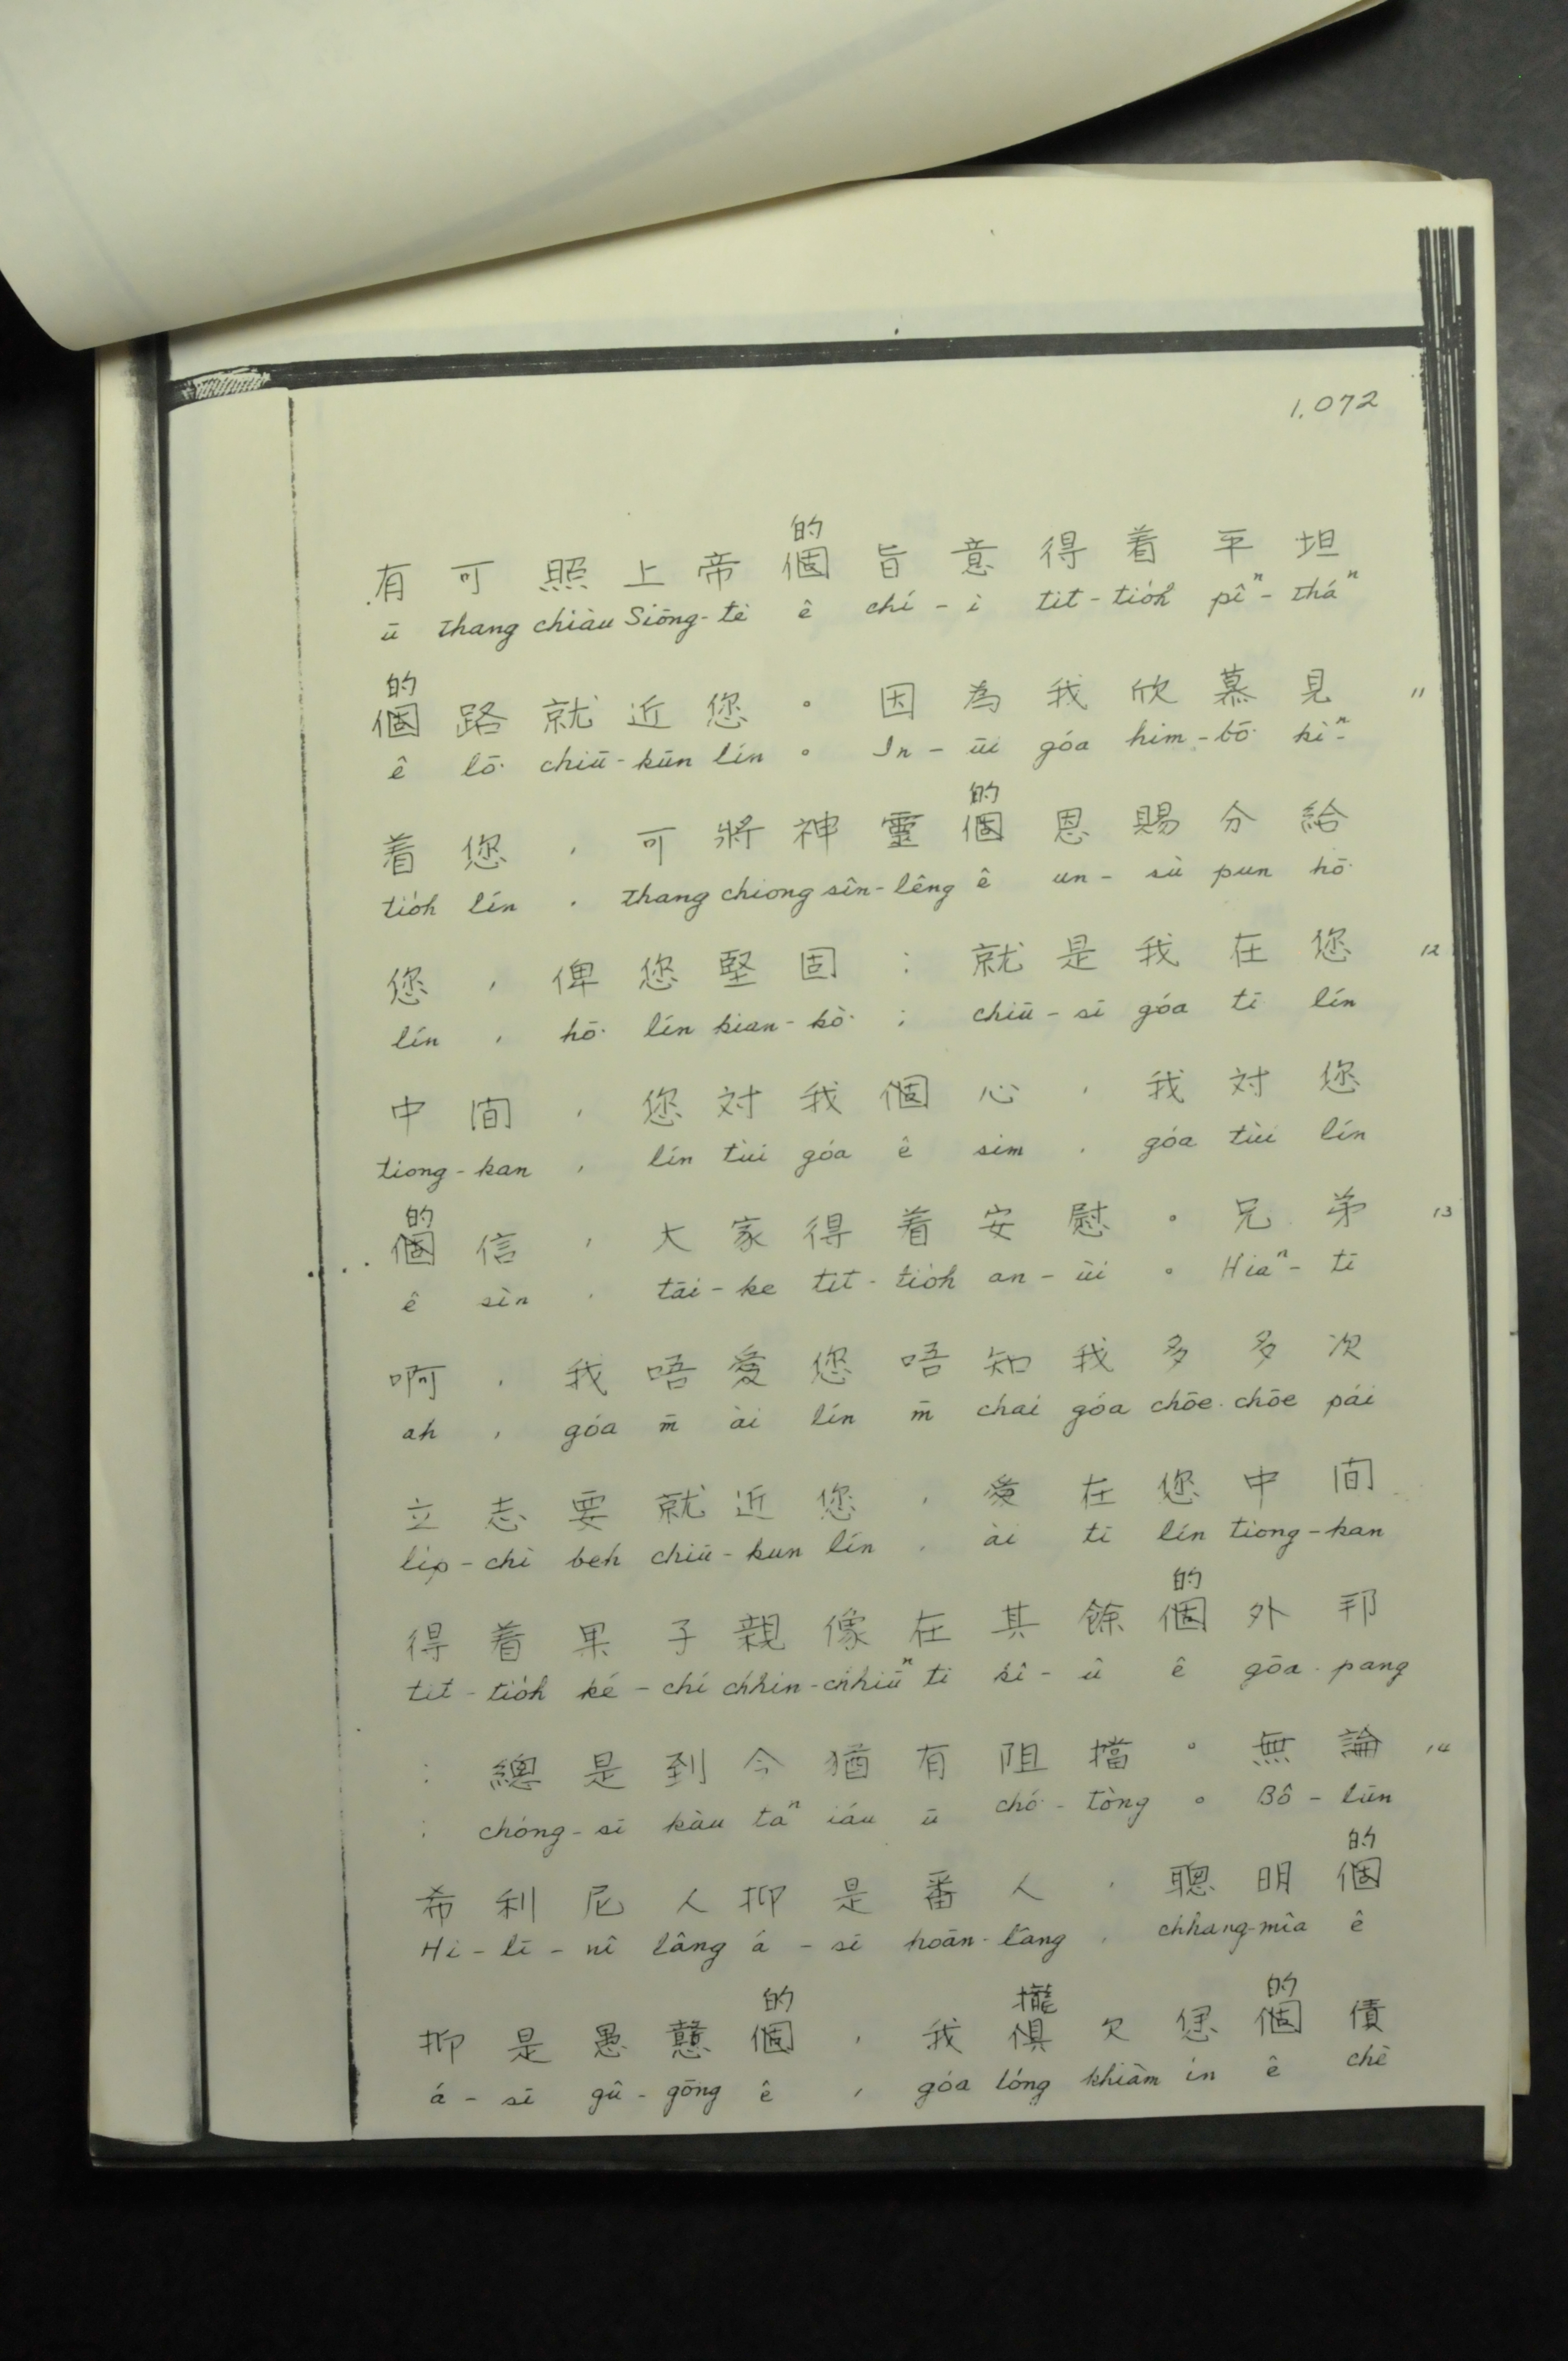 1.072
的
有可照上帝個旨意得着平坦
ū thang chiàu Siōng-tè ê chí-ì tit-tio̍h pîⁿ-tháⁿ
的
個路就近您。因為我欣慕見 11
ê lō͘ chiū-kūn lín。In-ūi góa him-bō͘ kìⁿ-
的
着您,可將神靈個恩賜分給
tio̍h lín, thang chiong sîn-lêng ê un-sù pun hō͘
您,俾您堅固;就是我在您 12
lín, hō͘ lín kian-kò͘; chiū-sī góa tī lín
中間,您対我個心,我対您
tiong-kan, lín tùi góa ê sim, góa tùi lín
的
個信,大家得着安慰。兄弟 13
ê sìn, tāi-ke tit-tio̍h an-ùi。Hiaⁿ-tī
啊,我唔愛您唔知我多多次
ah, góa m̄ ài lín m̄ chai góa chōe-chōe pái
立志要就近您,愛在您中間
li̍p-chì beh chiū-kun lín, ài tī lín tiong-kan
的
得着果子親像在其餘個外邦
tit-tio̍h ké-chí chhin-chhiūⁿ tī kî-û ê gōa-pang
:總是到今猶有阻擋。無論 14
: chóng-sī kàu taⁿ iáu ū chó͘-tòng。Bô-lūn
的
希利尼人抑是番人,聰明個
Hi-lī-nî lâng á-sī hoān-lâng, chhang-mîa ê
的 攏 的
抑是愚戇個,我俱欠𪜶個債
á-sī gû-gōng ê, góa lóng khiàm in ê chè